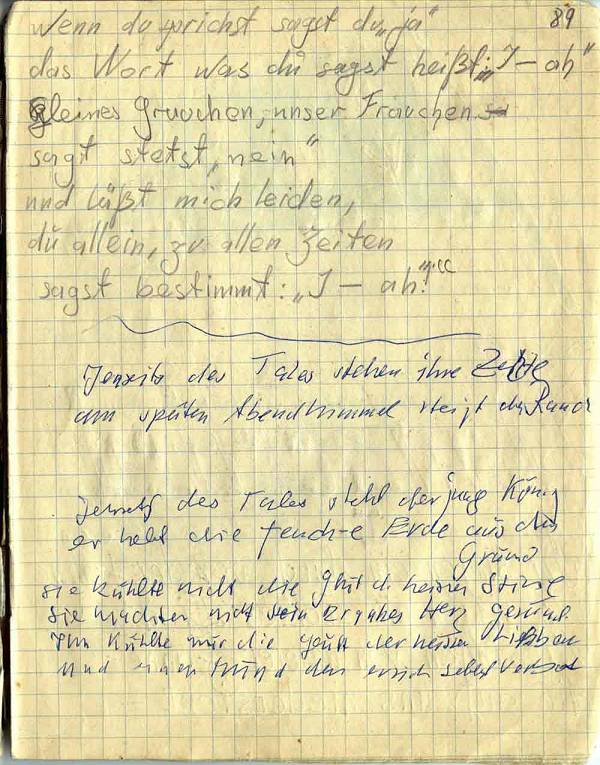 89
wenn du sprichst sagst du „ja“
das Wort was du sagst heißt: „I – ah“
kleines Grauchen, unser Frauchen
sagt stetst „nein“
und läßt mich leiden,
du allein, zu allen Zeiten
sagst bestimmt: „I – ah!“
Jenseits des Tales stehen ihre Zelte
am späten Abendhimmel steigt der Rauch
Jenseits des Tales steht der junge König
er hebt die feuchte Erde aus dem
Grund
sie kühlte nicht die Glut d. heißen Stirne
sie machte nicht sein Herz gesund.
Ihn kühlte nur die der heißen
und Mund den er sich selbst verbot